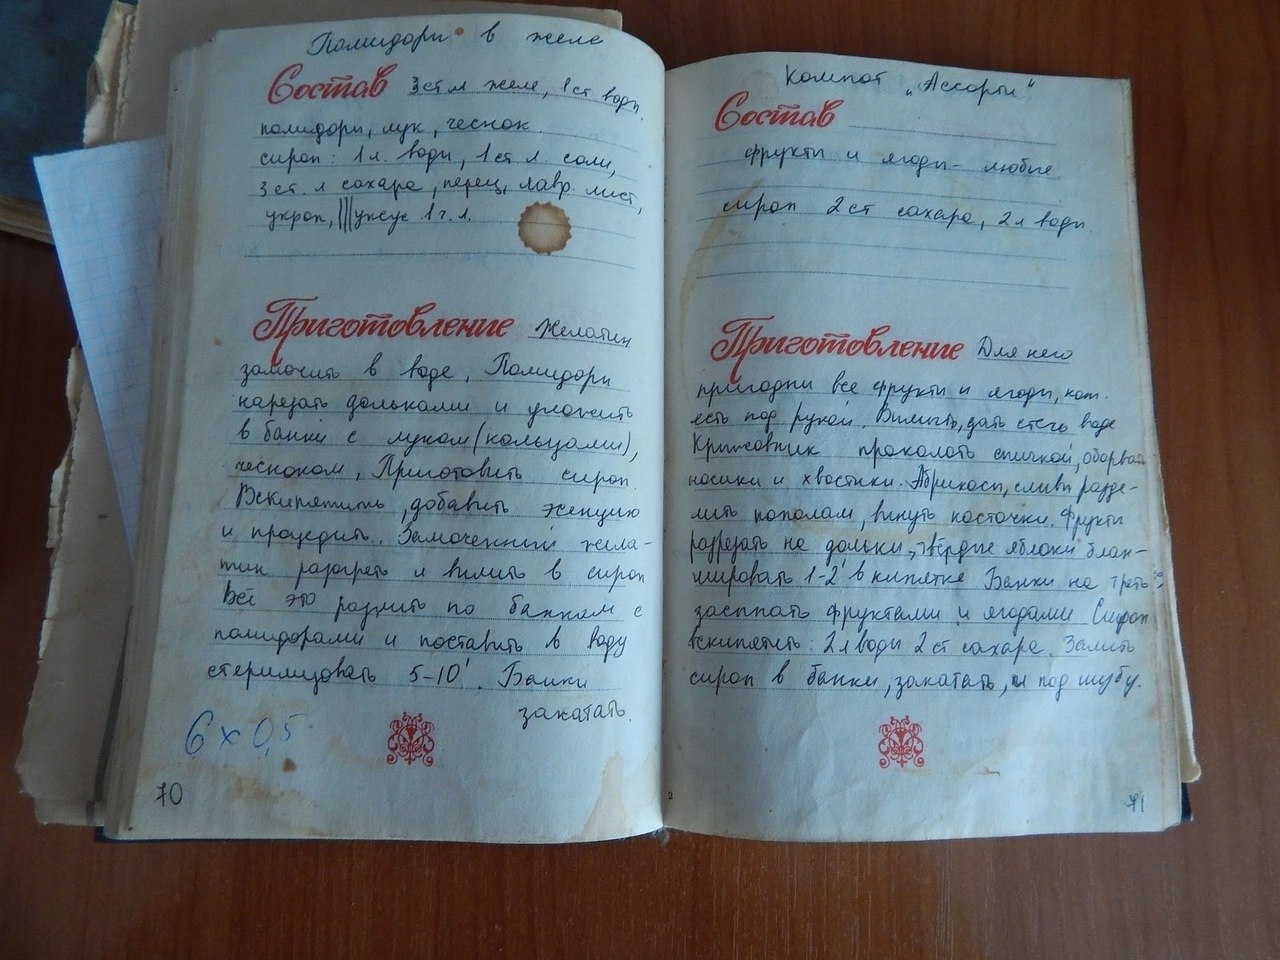 Помидори в желе
Состав 3 ст л желе, 1 ст води.
помидори, лук, чеснок.
сироп: 1 л. води, 1 ст л. соли,
3 ст л сахара, перец, лавр. лист,
укроп, уксус 1 ч. л.
Приготовление Желатин
замочить в воде. Помидори
нарезать дольками и уложить
в банки с луком (кольцами),
чесноком. Приготовить сироп.
Вскипятить, добавить эсенцию
и процедить. Замоченний жела-
тин разогреть и вилить в сироп
Всё это разлить по банкам с
помидорами и поставить в воду
стерилизовать 5-10'. Банки
закатать.
6 х 0,5
70
Компот "Ассорти"
Состав
фрукты и ягоды - любые
сироп 2 ст сахара, 2 л води.
Приготовление Для него
пригодни все фрукты и ягоды, кот.
есть под рукой. Вимить, дать стечь воде
Крижовник проколоть спичкой, оборвать
носики и хвостики. Абрикоси, сливи разде-
лить пополам, винуть косточки. Фрукти
разрезать на дольки, твёрдые яблоки блан-
шировать 1-2' в кипятке Банки на треть
засыпать фруктами и ягодами Сироп
вскипятить: 2 л води 2 ст сахара. Залить
сироп в банки, закатать, и под шубу.
2
71